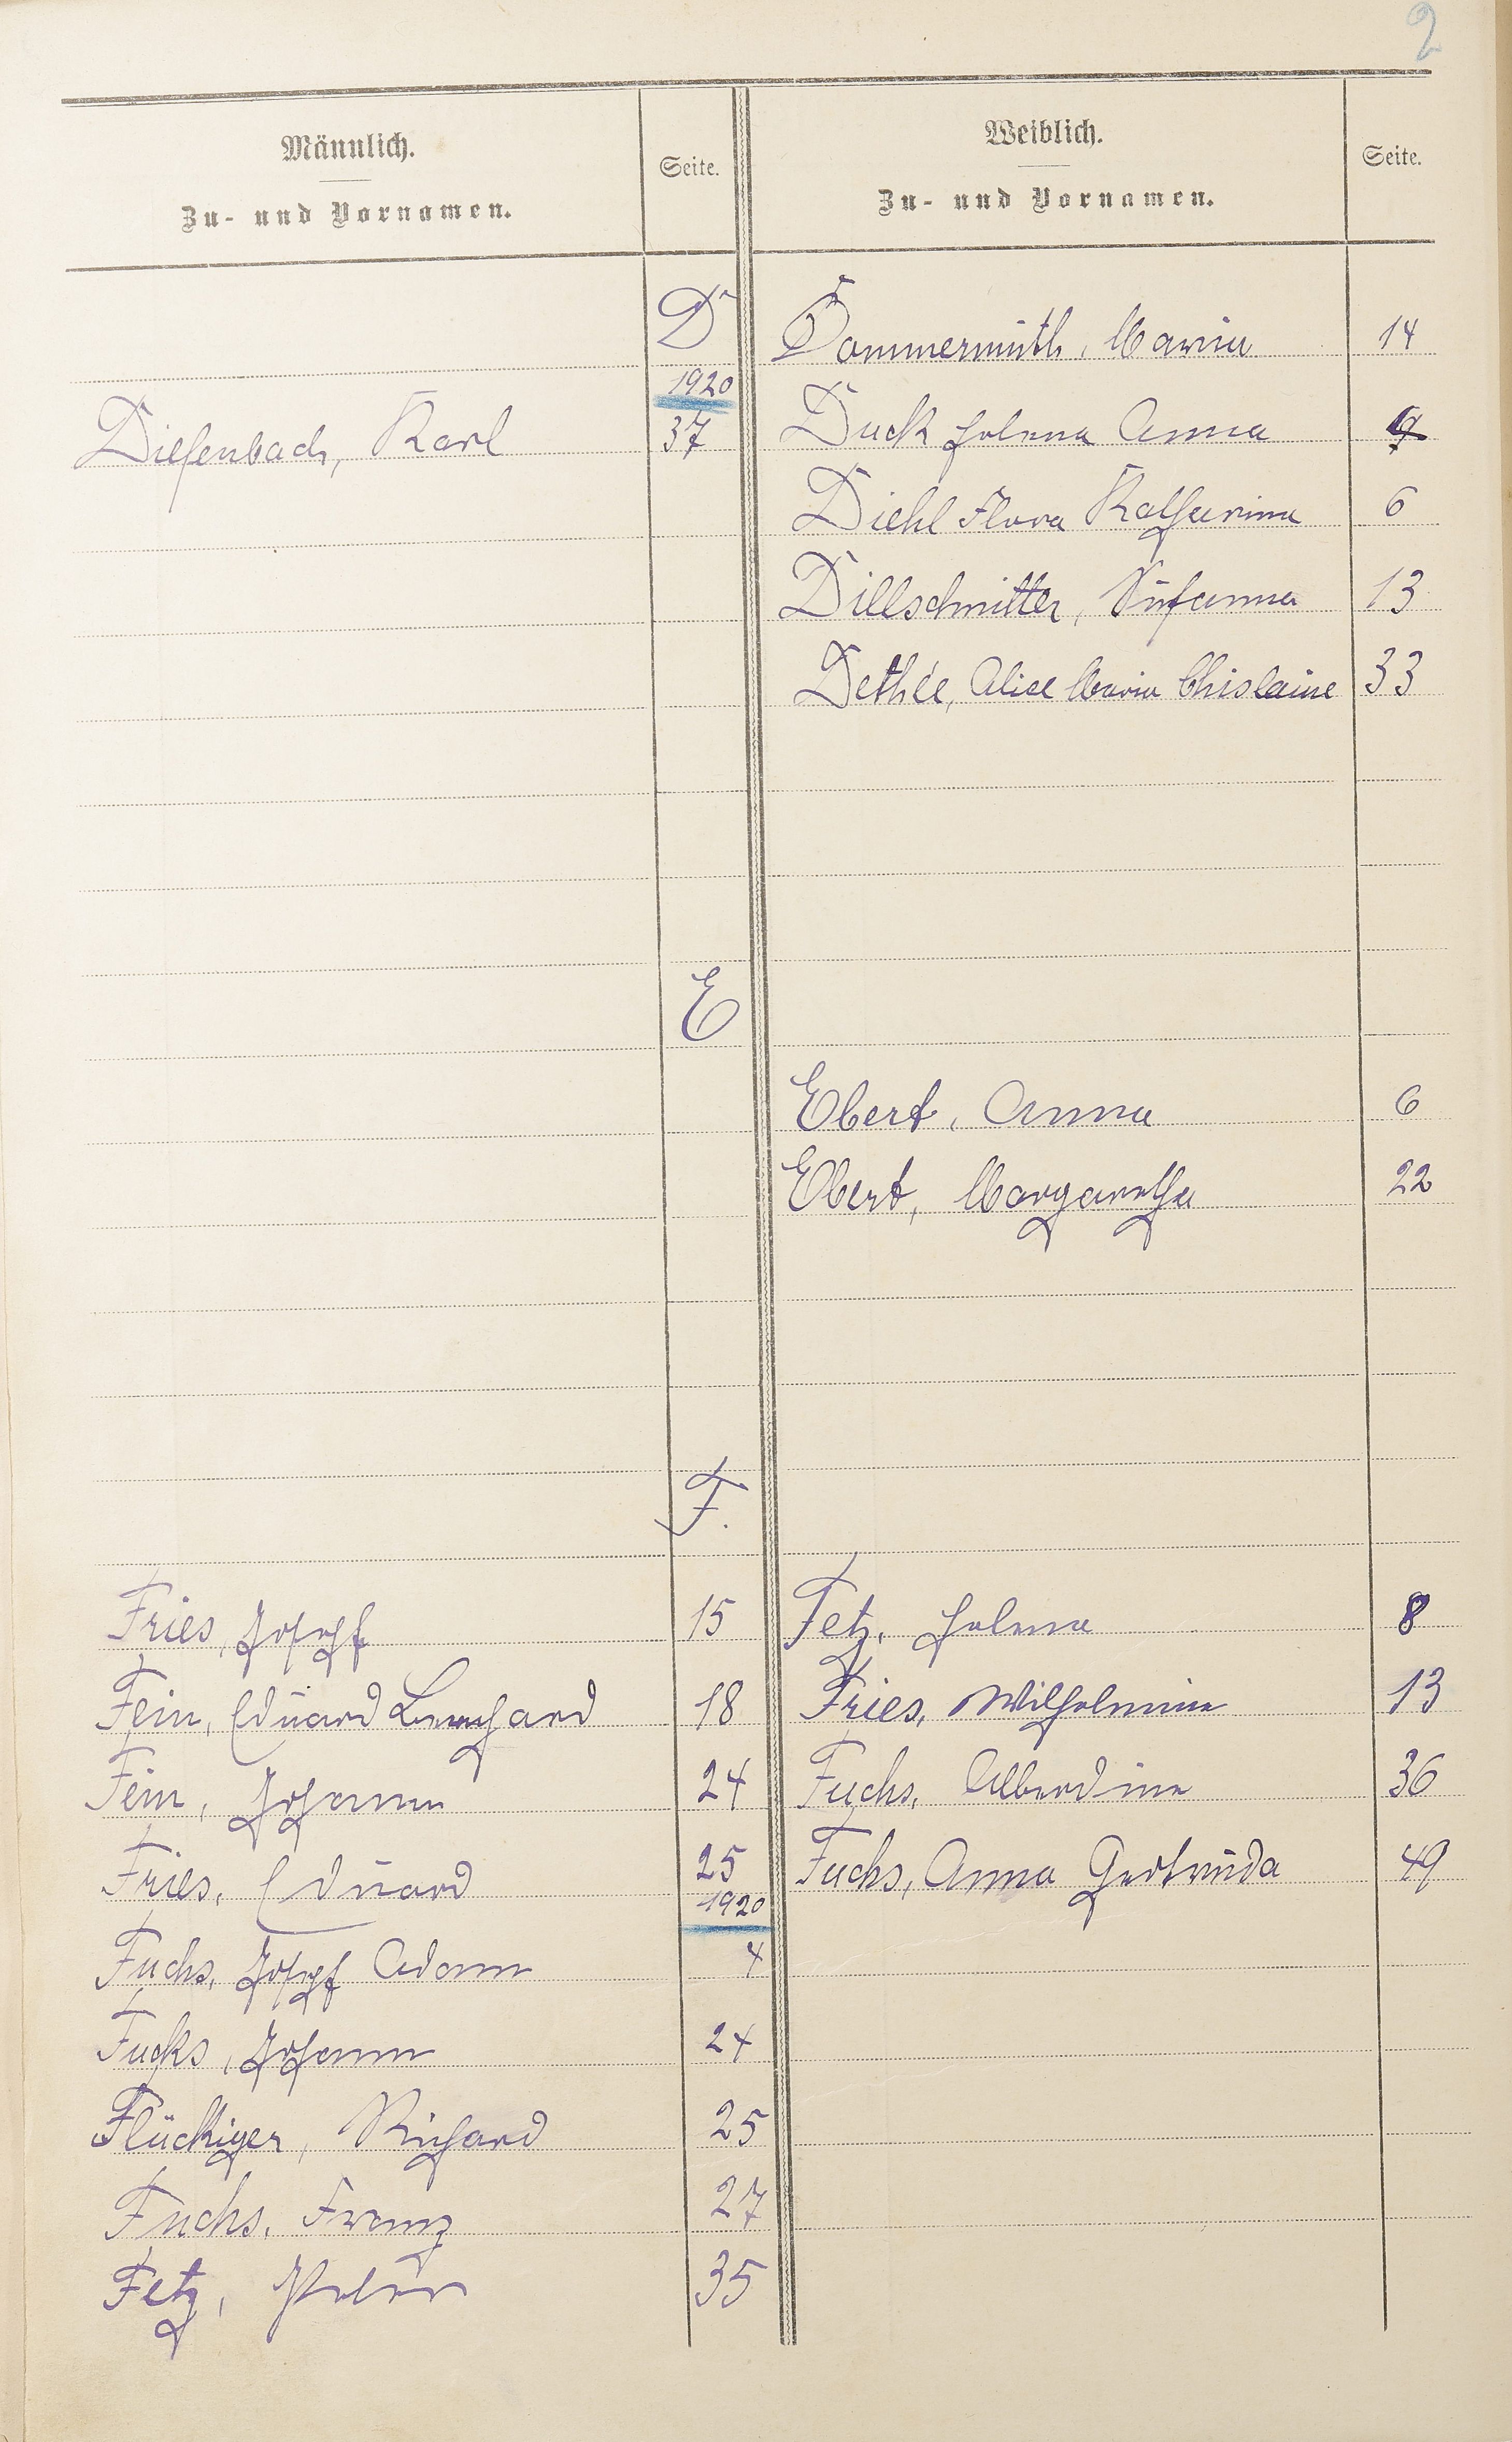 2
Männlich.
Zu- und Vornamen.
Seite.
Weiblich.
Zu- und Vornamen.
Seite.
D
Dommermuth, Maria 14
1920
Diefenbach, Karl 37
Duck Helena Anna 9
Diehl Flora Katharina 6
Dillschnitter, Susanna 13
Dethée, Alice Maria Ghislaine 33
E
Ebert, Anna 6
Ebert, Margaretha 22
F.
Fries, Joseph 15
Fetz, Helena 8
Fein, Eduard Bernhard 18
Fries, Wilhelmine 13
Fein, Johann 24
Fuchs, Albertine 36
Fries, Eduard 25
Fuchs, Anna Gertruda 49
1920
Fuchs, Josef Adam 4
Fuchs, Johann 24
Flückiger, Richard 25
Fuchs, Franz 27
Fetz, Peter 35